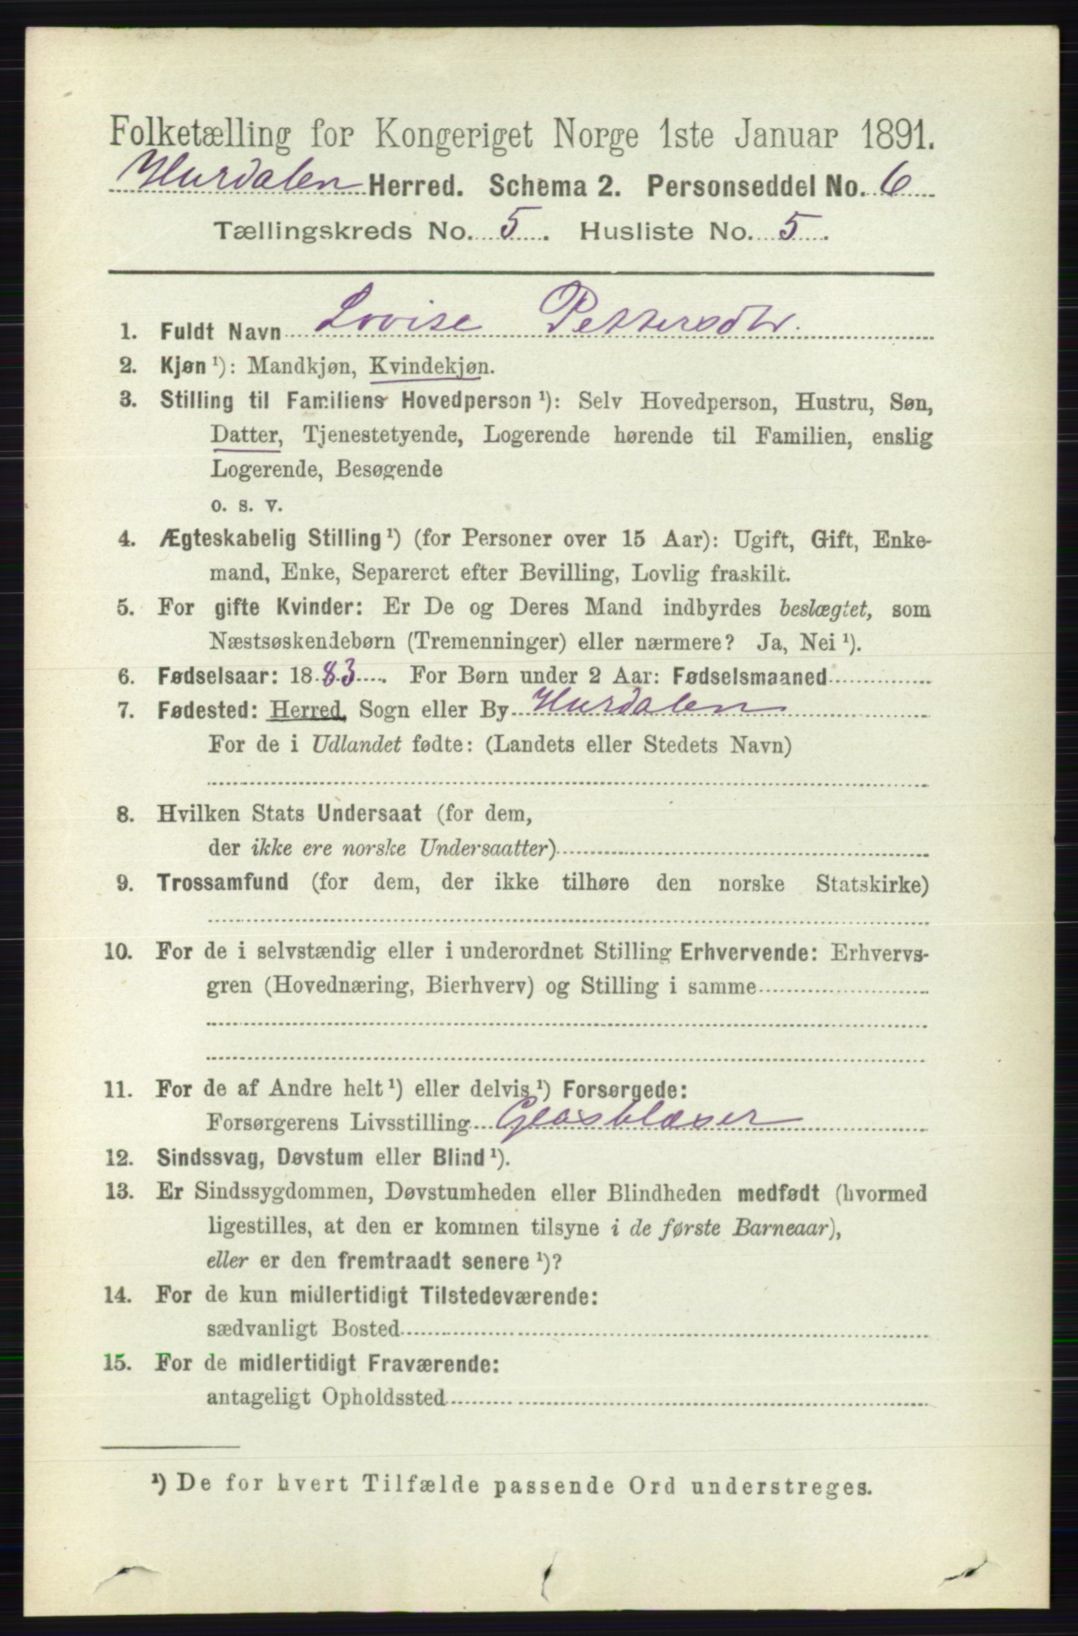 Folketælling for Kongeriget Norge 1ste Januar 1891.
Hurdalen Herred. Schema 2. Personseddel No. 6
Tællingskreds No. 5. Husliste No. 5.
1. Fuldt Navn Lovise Pettersdtr.
2. Kjøn ¹): Mandkjøn, Kvindekjøn.
3. Stilling til Familiens Hovedperson ¹): Selv Hovedperson, Hustru, Søn,
Datter, Tjenestetyende, Logerende hørende til Familien, enslig
Logerende, Besøgende
o. s. v.
4. Ægteskabelig Stilling ¹) (for Personer over 15 Aar): Ugift, Gift, Enke-
mand, Enke, Separeret efter Bevilling, Lovlig fraskilt.
5. For gifte Kvinder: Er De og Deres Mand indbyrdes beslægtet, som
Næstsøskendebørn (Tremenninger) eller nærmere? Ja, Nei ¹).
6. Fødselsaar: 1883. For Børn under 2 Aar: Fødselsmaaned
7. Fødested: Herred, Sogn eller By Hurdalen
For de i Udlandet fødte: (Landets eller Stedets Navn)
8. Hvilken Stats Undersaat (for dem,
der ikke ere norske Undersaatter)
9. Trossamfund (for dem, der ikke tilhøre den norske Statskirke)
10. For de i selvstændig eller i underordnet Stilling Erhvervende: Erhvervs-
gren (Hovednæring, Bierhverv) og Stilling i samme
11. For de af Andre helt ¹) eller delvis ¹) Forsørgede:
Forsørgerens Livsstilling Glasblæser
12. Sindssvag, Døvstum eller Blind ¹).
13. Er Sindssygdommen, Døvstumheden eller Blindheden medfødt (hvormed
ligestilles, at den er kommen tilsyne i de første Barneaar),
eller er den fremtraadt senere ¹)?
14. For de kun midlertidigt Tilstedeværende:
sædvanligt Bosted
15. For de midlertidigt Fraværende:
antageligt Opholdssted
¹) De for hvert Tilfælde passende Ord understreges.